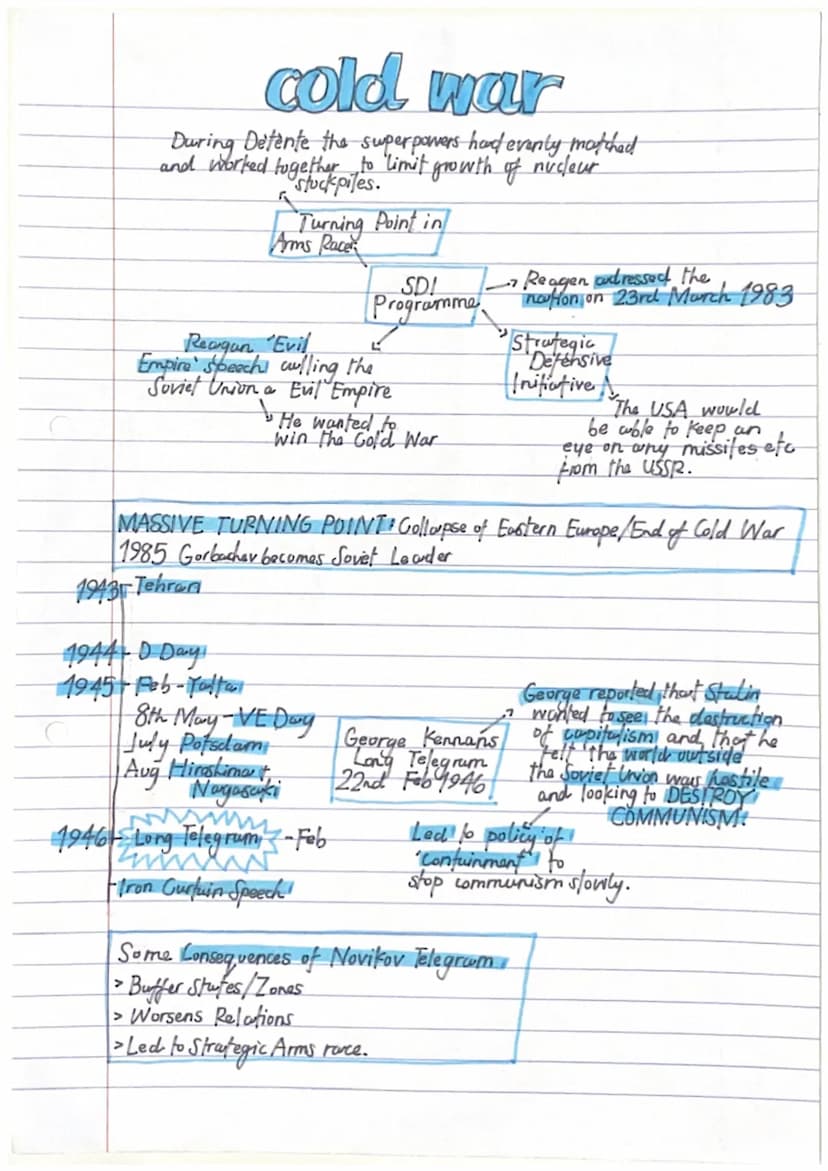 cold war
During Détente the superpowers had evenly matched
and worked together to limit growth of nuclear
stockpiles.
Turning Point in
Arms Race:
SDI
Programme
Reagen adressed the
nation on 23rd March 1983
Reagan 'Evil
Empire' speech calling the
Soviet Union a Evil Empire
He wanted to
win the Cold War
Strategic
Defensive
Initiative
The USA would
be able to keep an
eye on any missiles etc
from the USSR.
MASSIVE TURNING POINT: Collapse of Eastern Europe/End of Cold War
1985 Gorbachev becomes Soviet Leader
1943 Tehran
1944 - D Day
1945 - Feb - Yalta
8th May - VE Day
July Potsdam
Aug Hiroshima +
Nagasaki
1946 - Long Telegram - Feb
- Iron Curtain Speech
George Kennans
Long Telegram
22nd Feb 1946
George reported that Stalin
wanted to see the destruction
of capitalism and that he
felt the world outside
the Soviet Union was hostile
and looking to DESTROY
COMMUNISM!
Led to policy of
'containment' to
stop communism slowly.
Some Consequences of Novikov Telegram
> Buffer States/Zones
> Worsens Relations
> Led to Strategic Arms race.